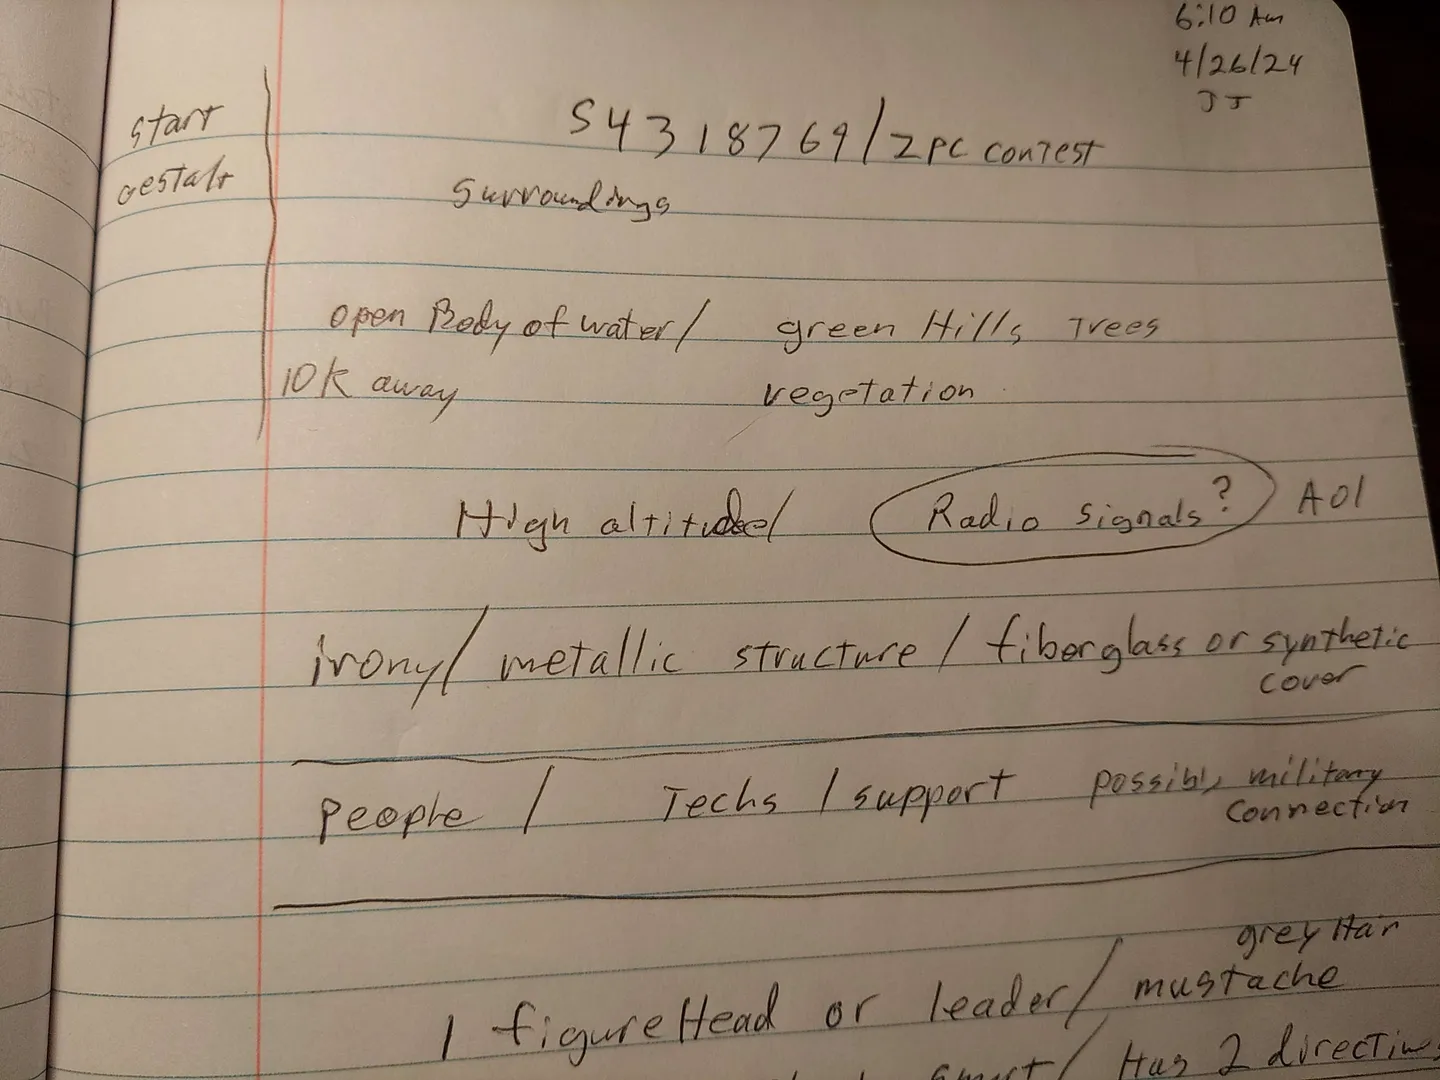 6:10 Am
4/26/24
JJ
start
gestalt
S4318769/2PC contest
Surroundings
open Body of water/ green Hills Trees
10K away vegetation
High altitude/ Radio signals? AOI
irony/ metallic structure / fiberglass or synthetic
cover
people / Techs / support possibly military
connection
grey Hair
1 figureHead or leader/ mustache
smart/ Has 2 directions